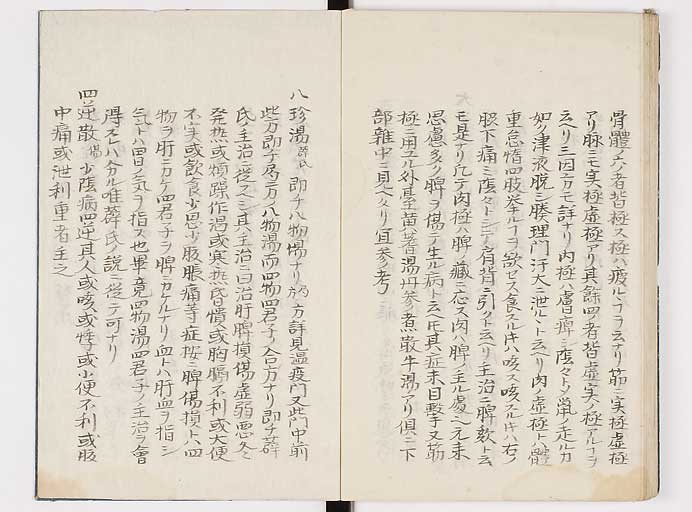 骨體ナク者皆極ス極ハ疲ル丶フヲ云ナリ筋ニ実極虚極
アリ脉ニモ実極虚極アリ其餘四ノ者皆虚実ノ極アルフヲ
云ヘリ三因方モ詳ナリ肉極ハ膚痺ニ䕃々トノ鼠ノ走ルカ
如ク津液脱ニ腠理門汗大ニ泄ル丶ト云ヘリ肉ノ虚極トハ體
重怠惰四肢挙ルフヲ欲セス食スルキハ咳ス咳スルキハ右ノ
脇下痛ミ䕃々トノ肩背ニ引クト云ヘリ主治ニ脾欬ト云
モ是アリ凡テ肉極ハ脾ノ藏ニ応ス肉ハ脾ノ主ル處也元来
思慮多ク脾ヲ傷テ生ル病ト云𪜈其症未目撃又筋
極ニ用ユル外甚黄蓍湯丹参煮散牛湯アリ俱ニ下
部雜中ニ見ヘタリ宜参考
八珍湯 薛氏 即チ八物湯ナリ方詳見溫疫門又此門中前
些方即チ局方八物湯而四物四君子ノ合方ナリ即チ薛
氏ノ主治ニ從ス其主治ニ曰治肝脾損傷虚弱悪冬
発热或煩躁作渇或寒热昏憒或胸膈不利或大便
不実或飲食少思少腹脹痛等症按ニ脾傷損トハ四
物ヲ肝ニカケ四君子ヲ脾ニカケルナリ血トハ肝血ヲ指シ
気トハ胃ノ気ヲ指ス也畢竟四物湯四君子ノ主治ヲ會
得スレハ分ル唯薛氏ノ説ニ從テ可ナリ
四逆散 湯 少陰病四逆其人或咳或悸或小便不利或腹
中痛或泄利重者主之